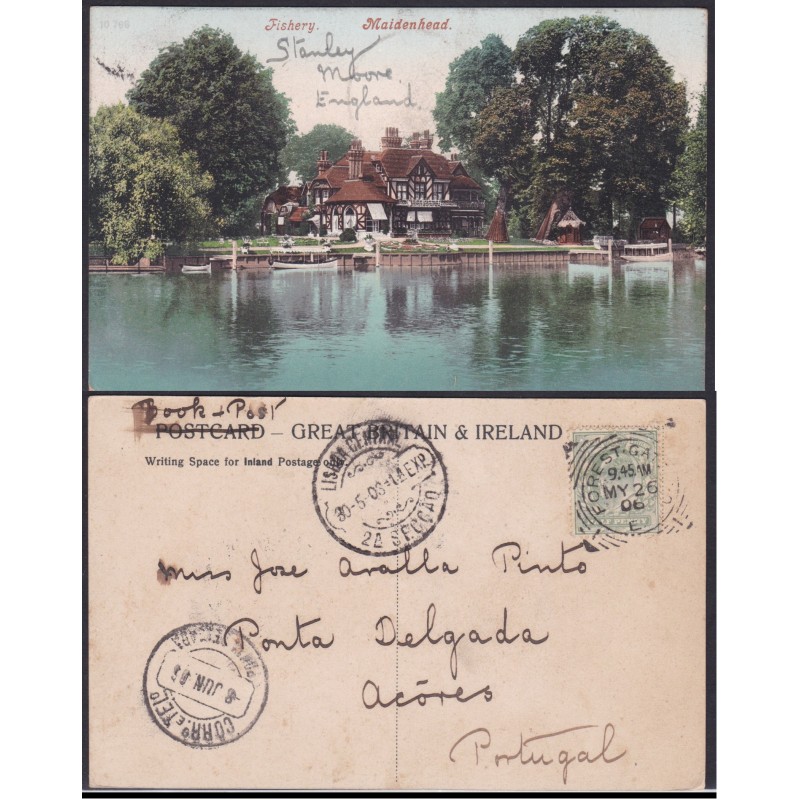 10 766
Fishery. Maidenhead.
Stanley
Moore
England
Book + Post
POSTCARD – GREAT BRITAIN & IRELAND
Writing Space for Inland Postage only.
LISBOA CENTRAL
30-5-06-1A EXP.
2A SECÇÃO
FOREST-GA
9.45AM
MY 26
06
E
F PENNY
Miss Jose Aralla Pinto
Ponta Delgada
Açôres
Portugal
8 JUN. 06
CORRº E TELº